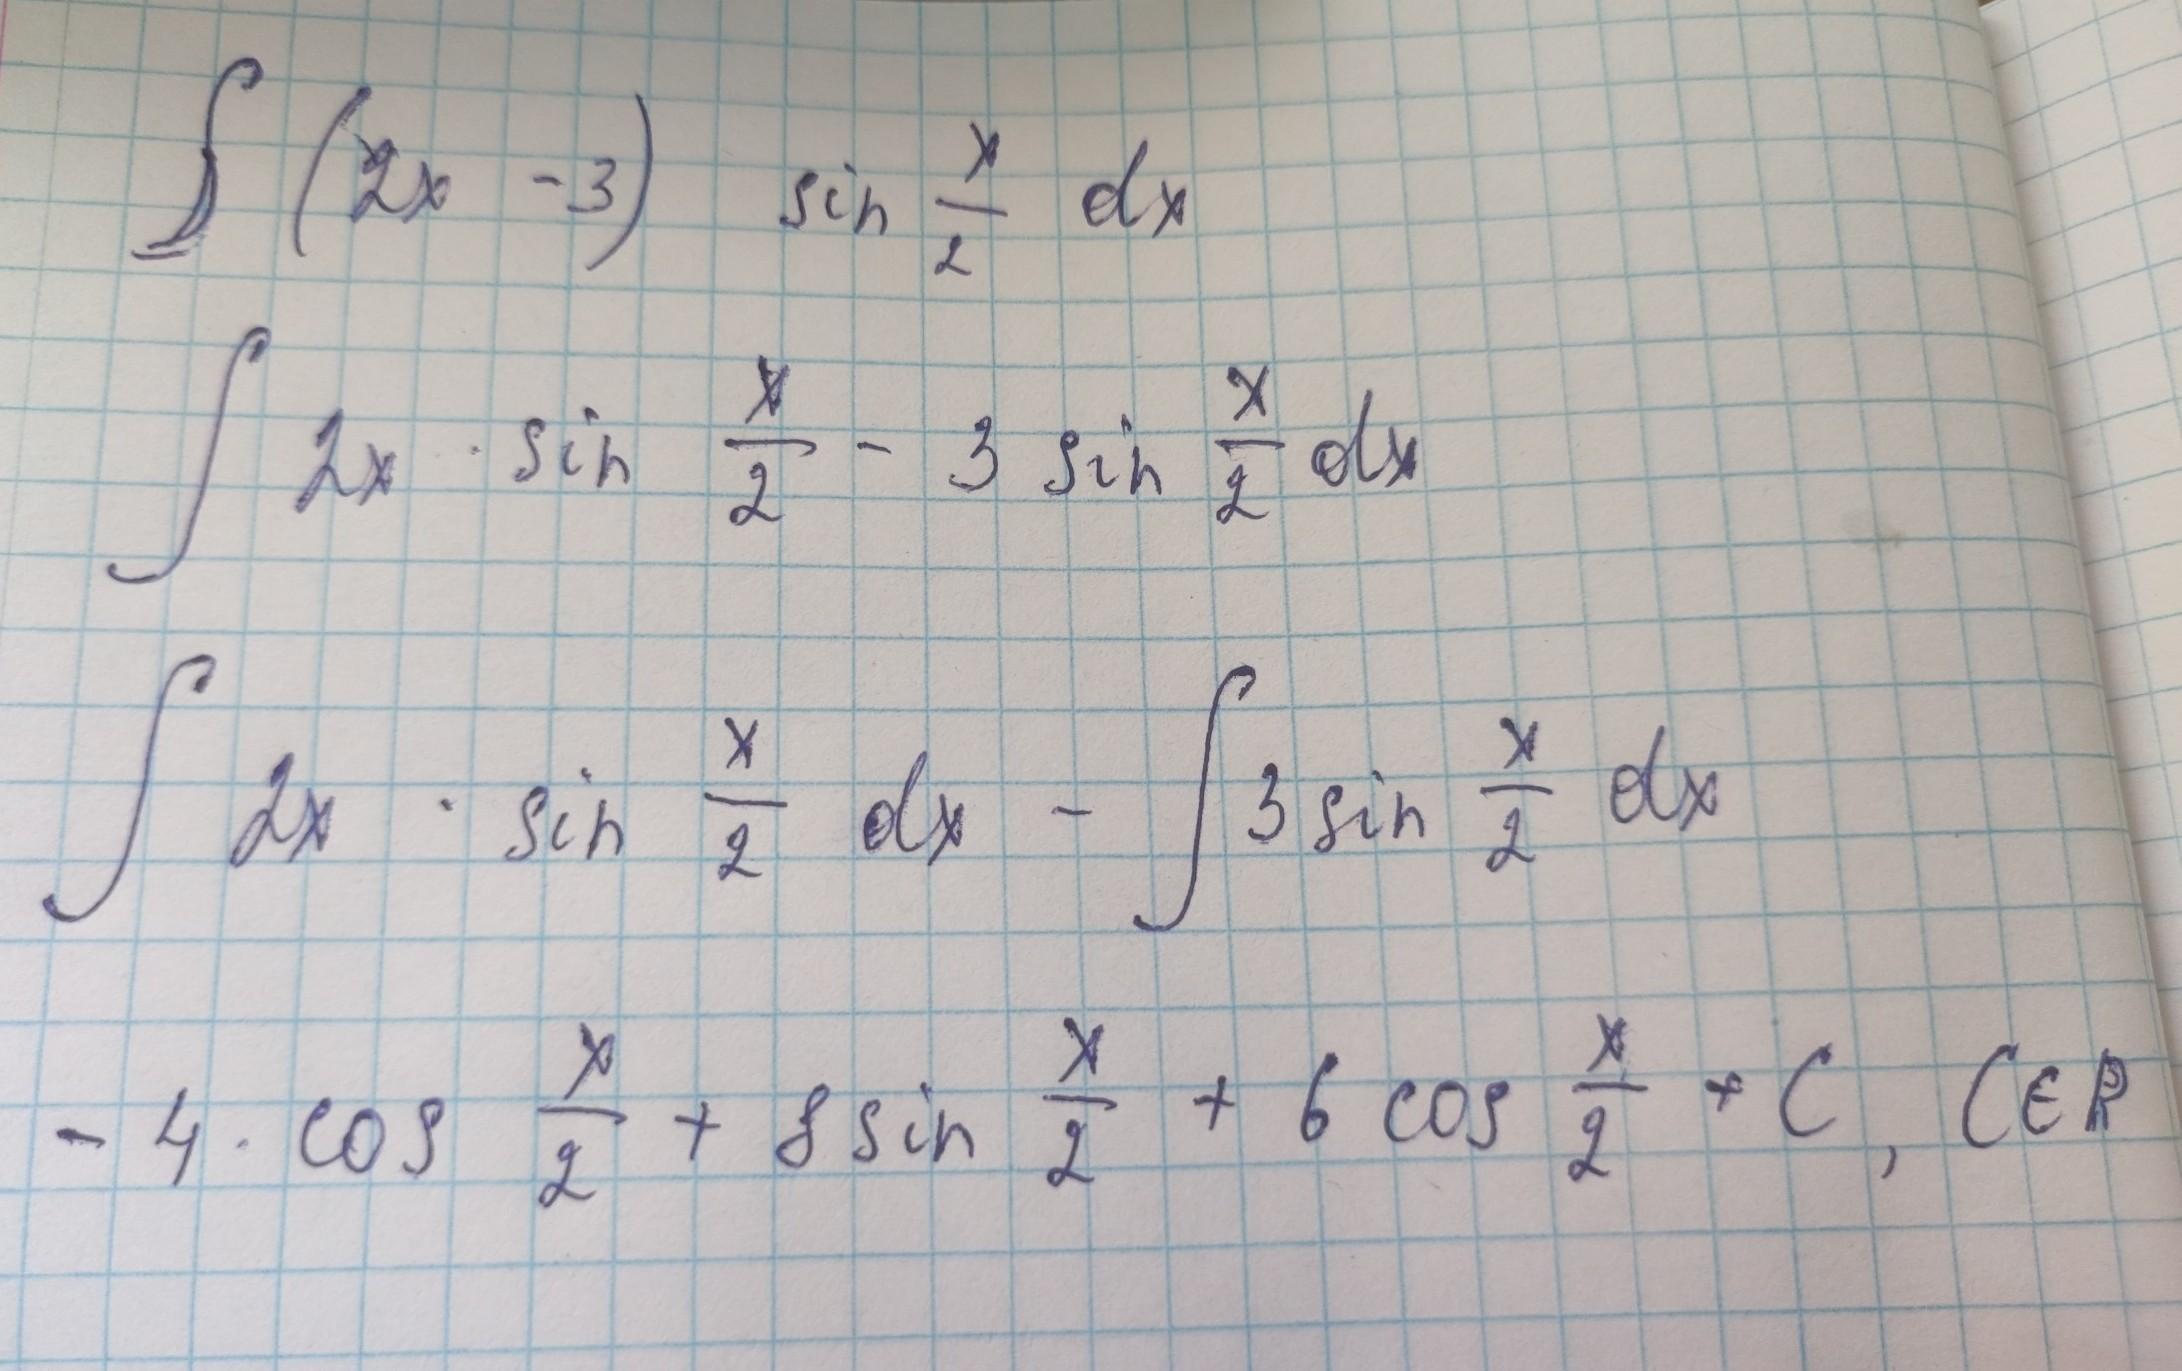 ∫ (2x - 3) sin x/2 dx
∫ 2x · sin x/2 - 3 sin x/2 dx
∫ 2x · sin x/2 dx - ∫ 3 sin x/2 dx
- 4 · cos x/2 + 8 sin x/2 + 6 cos x/2 + C, C ∈ R